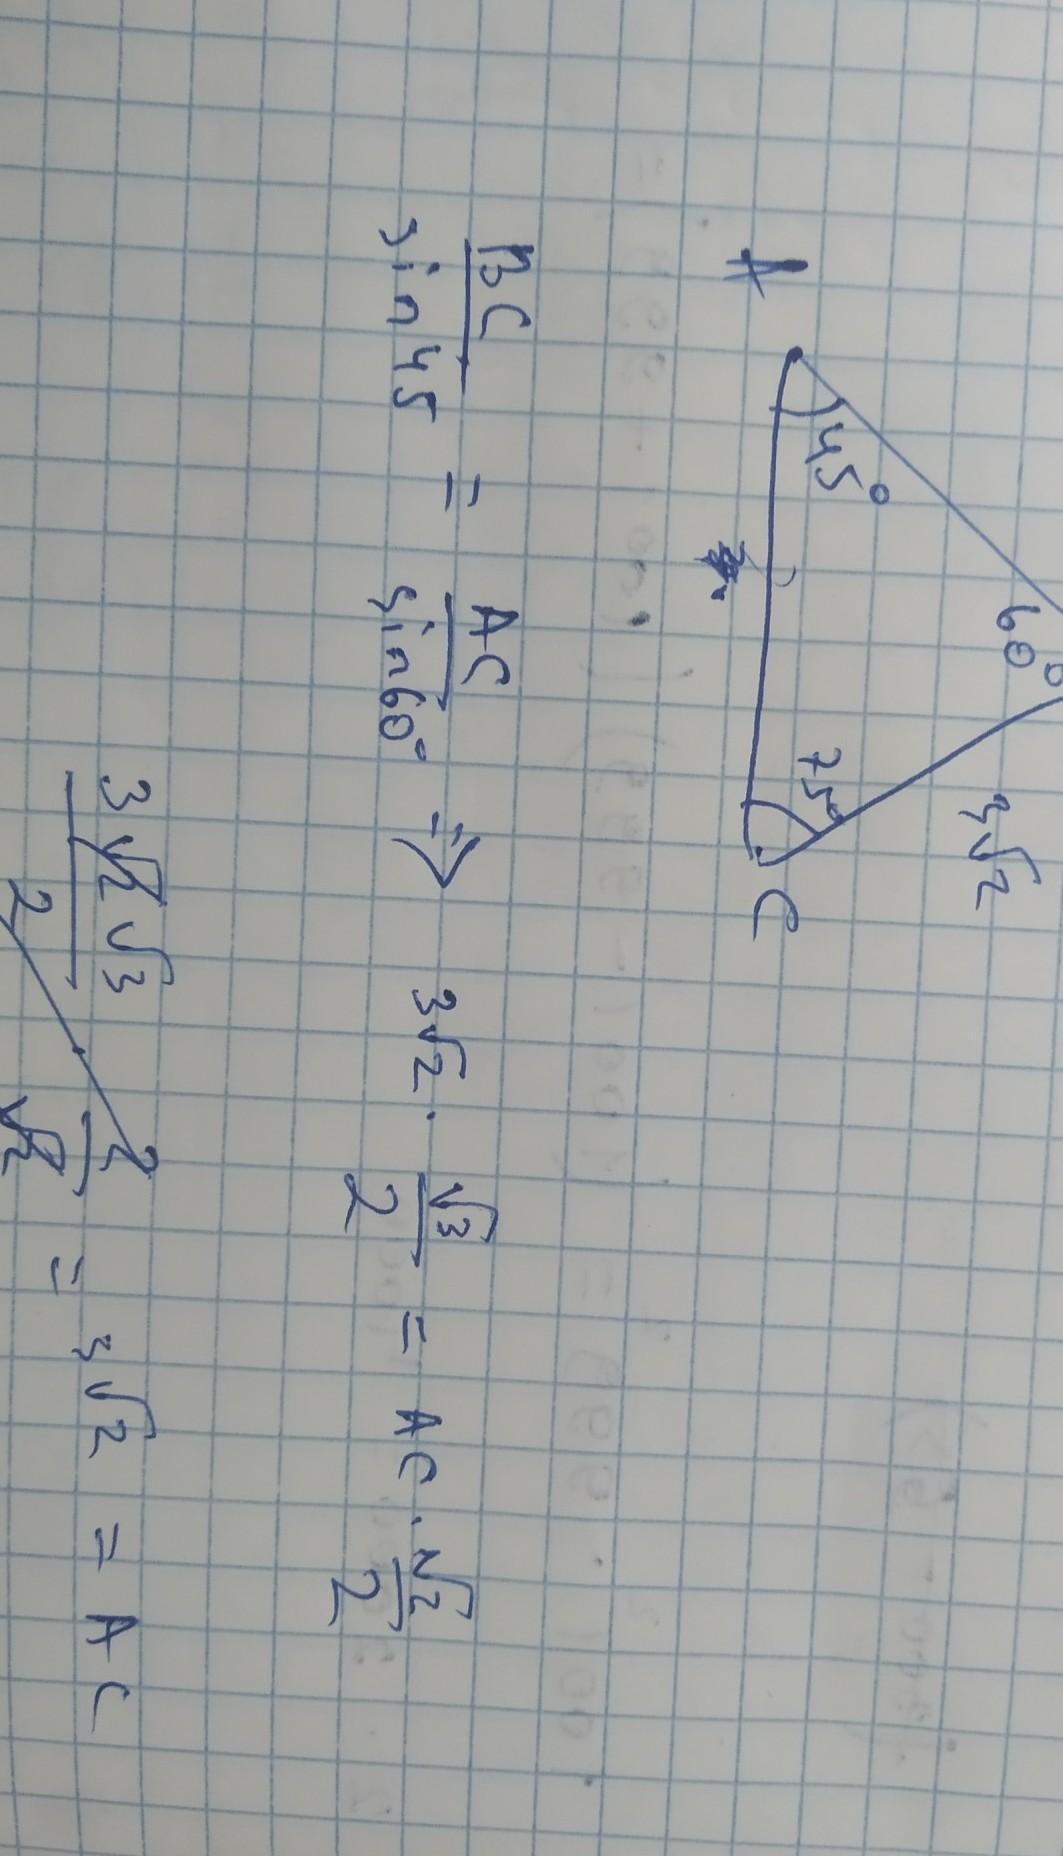 60°
3√2
A 45° 75° C
BC/sin45 = AC/sin60° => 3√2 · √3/2 = AC · √2/2
3√2√3/2 · 2/√2 = 3√2 = AC